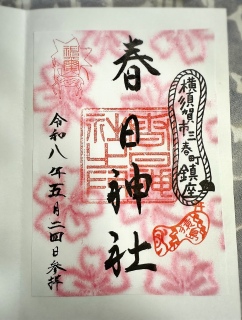 横須賀市三春町鎮座
春日神社
令和八年五月二四日参拝